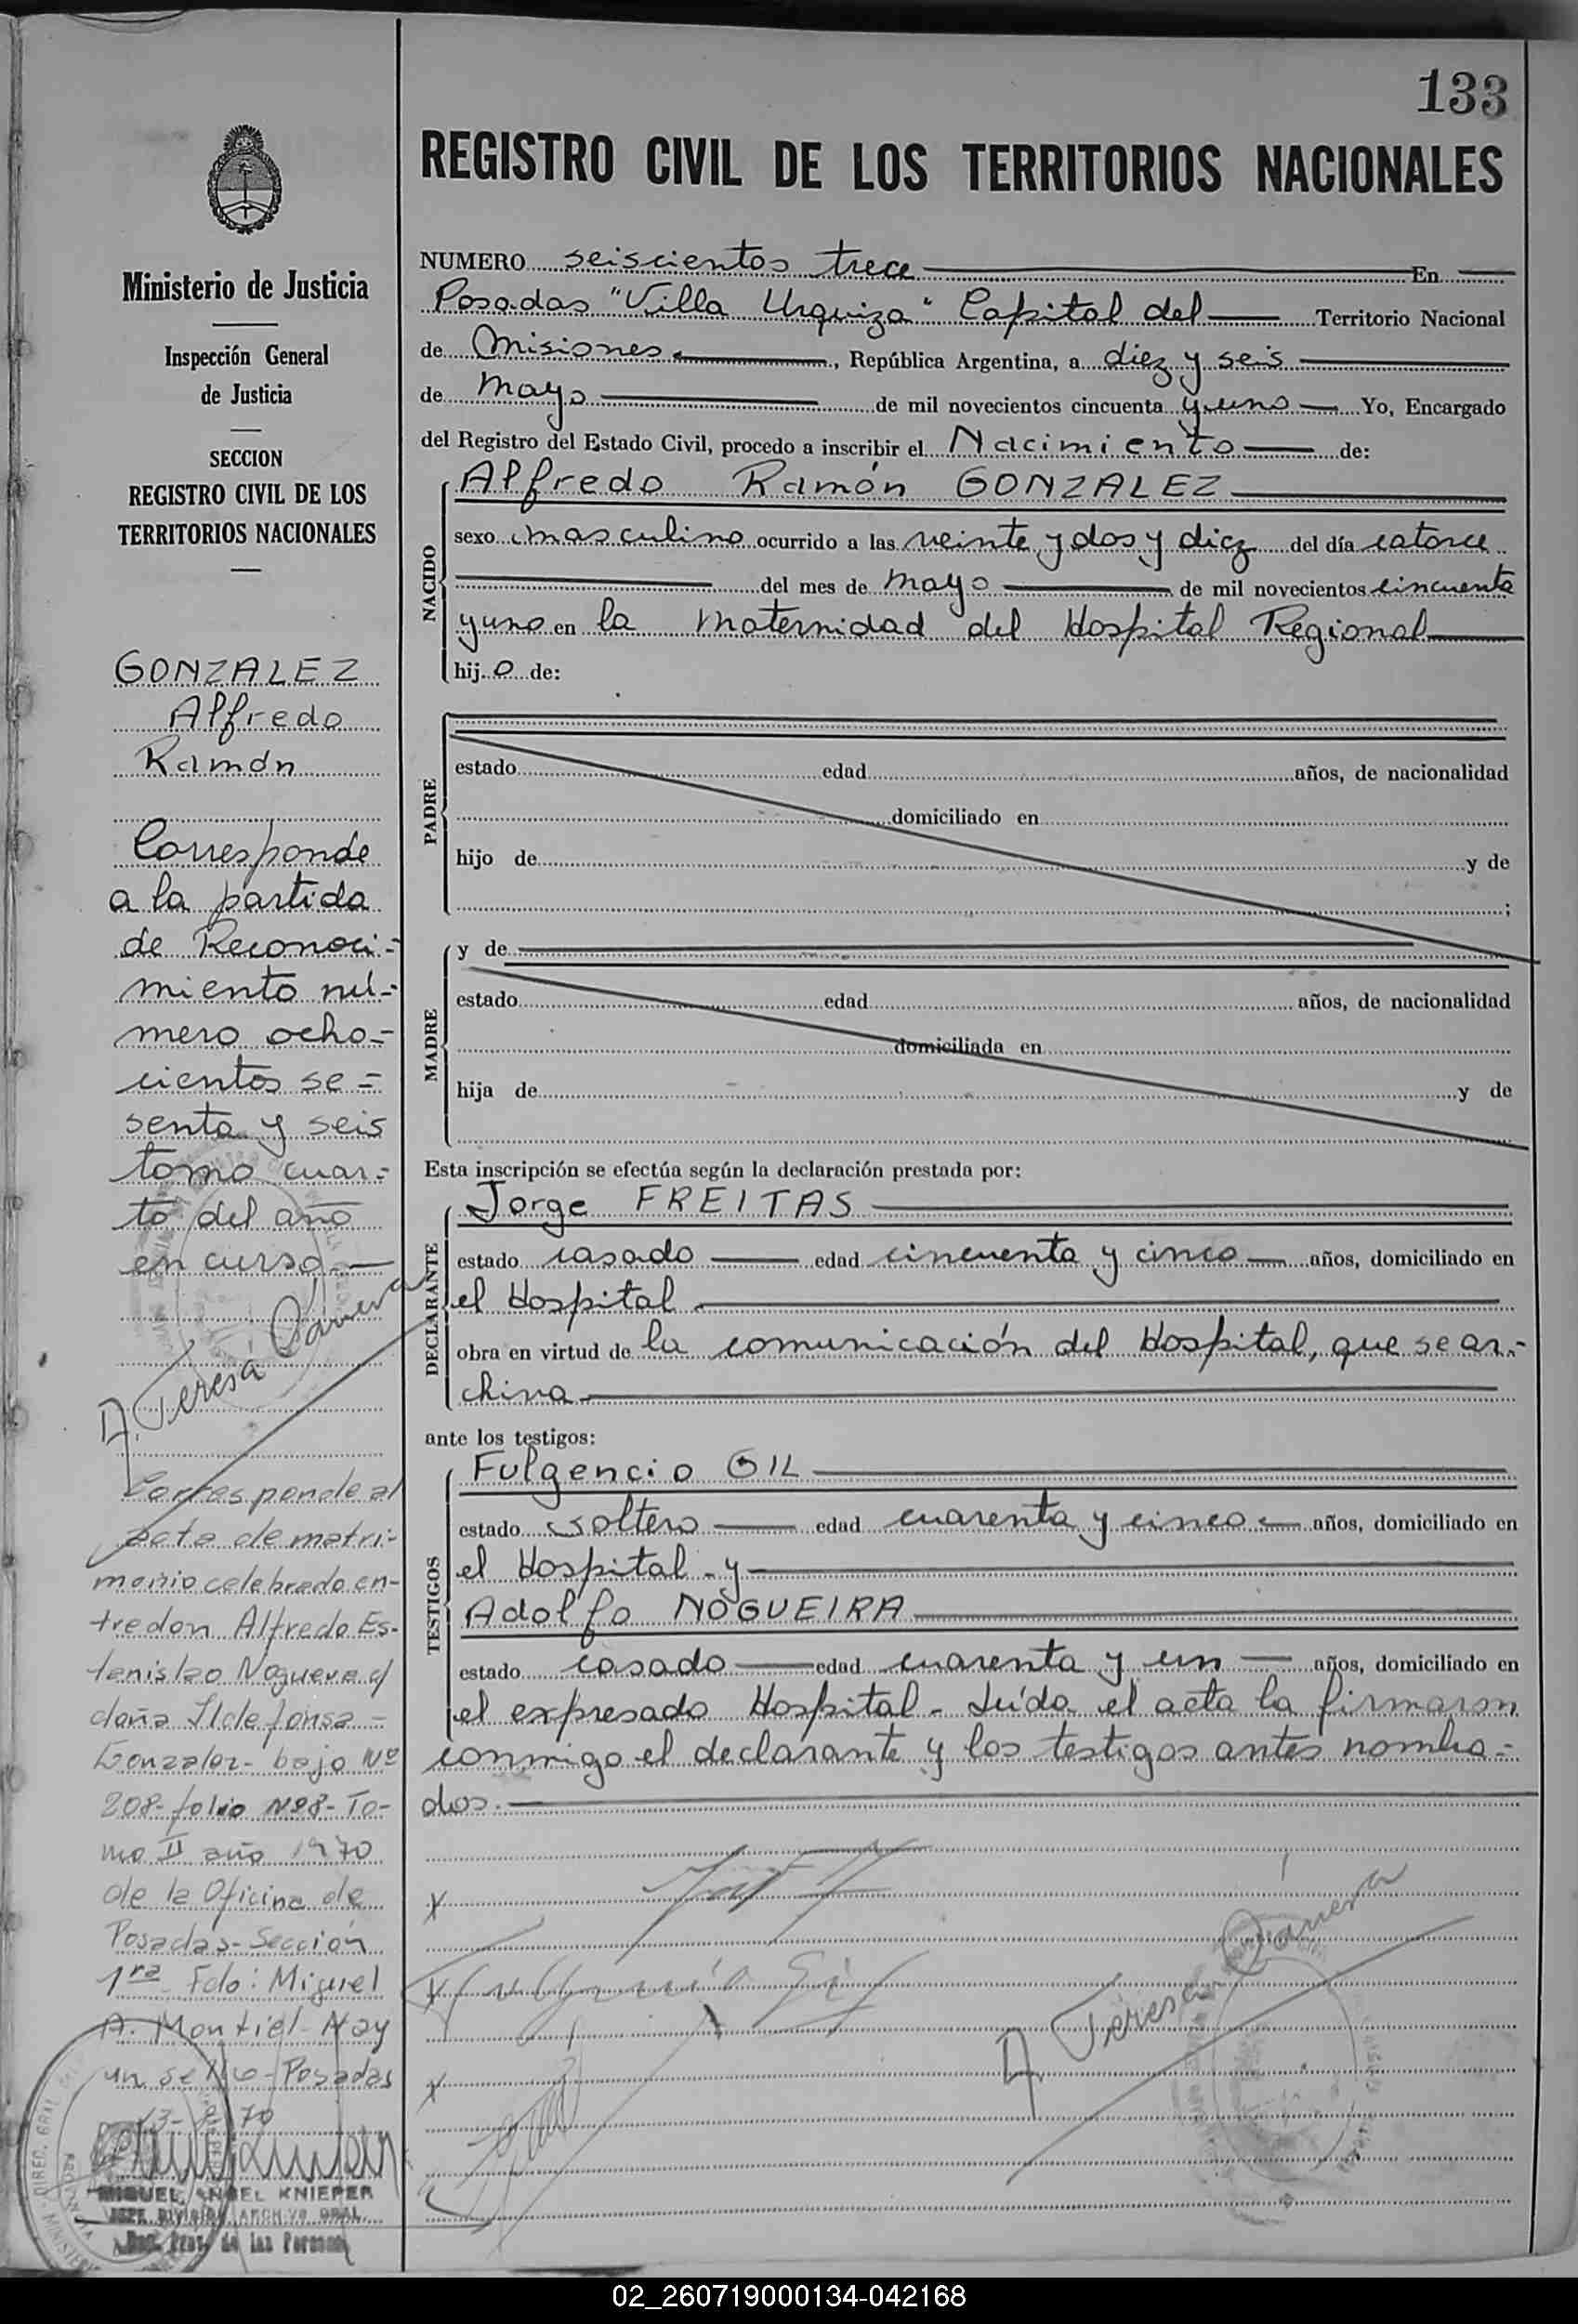 133
REGISTRO CIVIL DE LOS TERRITORIOS NACIONALES
Ministerio de Justicia
Inspección General
de Justicia
SECCION
REGISTRO CIVIL DE LOS
TERRITORIOS NACIONALES
GONZALEZ
Alfredo
Ramón
Corresponde
a la partida
de Reconoci-
miento nú-
mero ocho-
cientos se-
senta y seis
tomo cuar-
to del año
en curso
A. Teresa
Corresponde al
acta de matri-
monio celebrado en-
tre don Alfredo Es-
tanislao Noguera y
doña Ildefonsa
Gonzalez- bajo Nº
208- folio Nº8- To-
mo II año 1970
de la Oficina de
Posadas- Sección
1ra Fdo: Miguel
A. Montiel- Hay
un sello- Posadas
MIGUEL ANGEL KNIEPER
JEFE DIVISION ARCHIVO GRAL.
Reg. Prov. de las Personas
NUMERO seiscientos trece En
Posadas "Villa Urquiza" Capital del Territorio Nacional
de Misiones, República Argentina, a diez y seis
de mayo de mil novecientos cincuenta y uno Yo, Encargado
del Registro del Estado Civil, procedo a inscribir el Nacimiento de:
NACIDO
Alfredo Ramón GONZALEZ
sexo masculino ocurrido a las veinte y dos y diez del día catorce
del mes de mayo de mil novecientos cincuenta
y uno en la maternidad del Hospital Regional
hijo de:
PADRE
estado edad años, de nacionalidad
domiciliado en
hijo de y de
;
MADRE
y de
estado edad años, de nacionalidad
domiciliada en
hija de y de
Esta inscripción se efectúa según la declaración prestada por:
DECLARANTE
Jorge FREITAS
estado casado edad cincuenta y cinco años, domiciliado en
el Hospital
obra en virtud de la comunicación del Hospital, que se ar-
chiva
ante los testigos:
TESTIGOS
Fulgencio GIL
estado soltero edad cuarenta y cinco años, domiciliado en
el Hospital - y
Adolfo NOGUEIRA
estado casado edad cuarenta y un años, domiciliado en
el expresado Hospital - Leída el acta la firmaron
conmigo el declarante y los testigos antes nombra-
dos.
x
x Fulgencio Gil
A Teresa
x
02_260719000134-042168